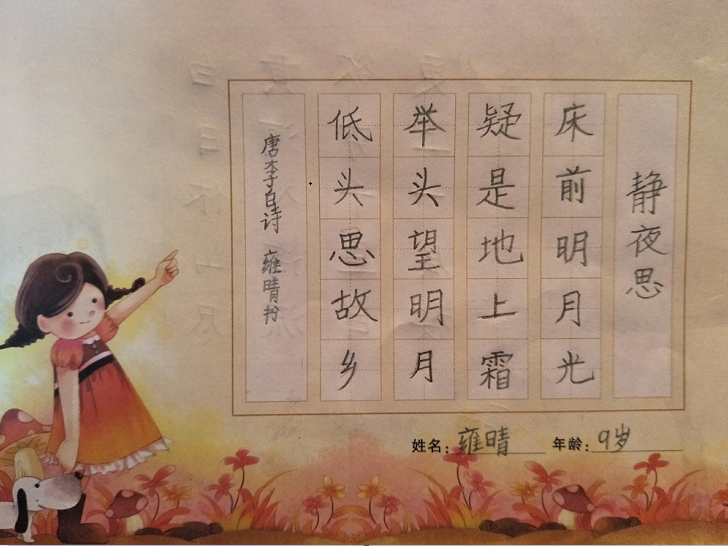 静夜思
床前明月光
疑是地上霜
举头望明月
低头思故乡
唐李白诗 雍晴书
姓名：雍晴 年龄：9岁